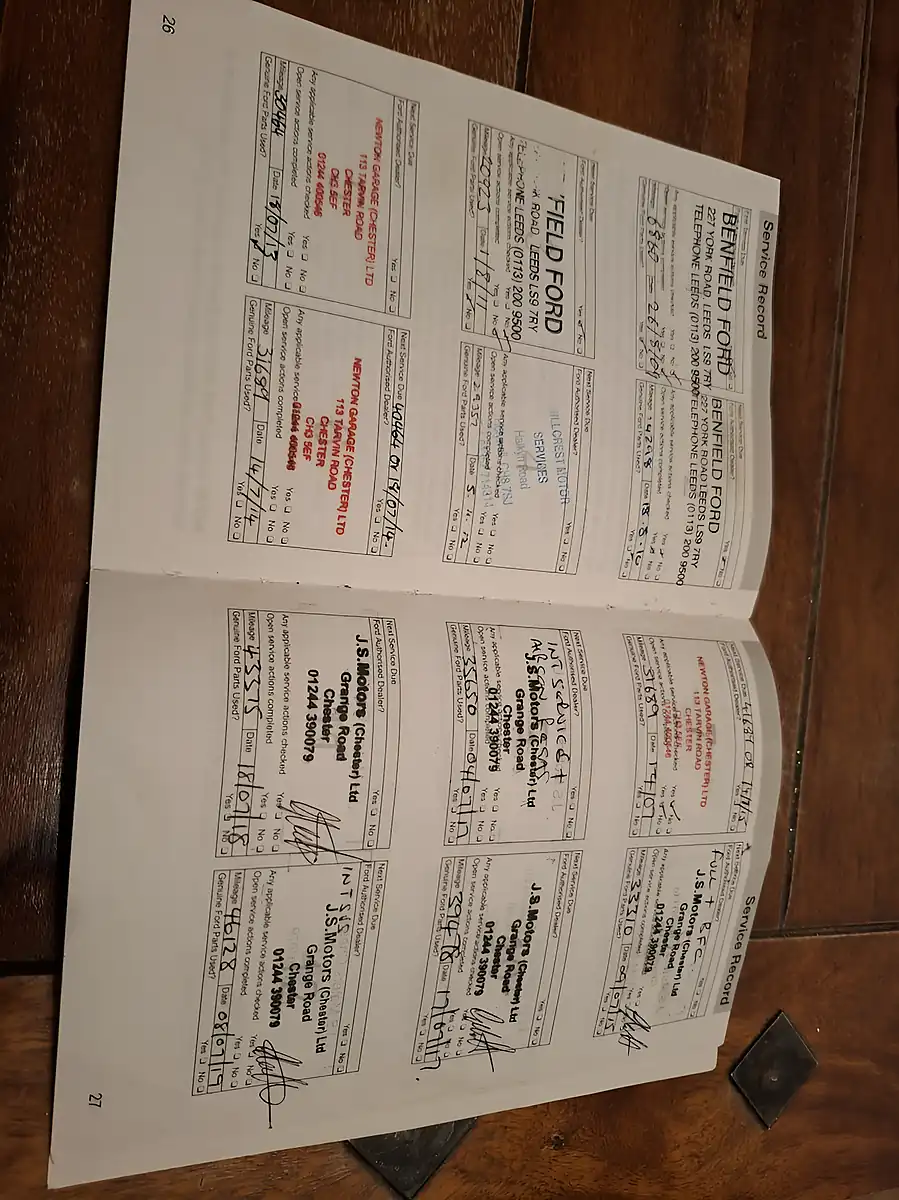 Service Record
BENFIELD FORD
227 YORK ROAD, LEEDS LS9 7RY
TELEPHONE LEEDS (0113) 200 9500
Yes No
Mileage 6860
BENFIELD FORD
227 YORK ROAD LEEDS LS9 7RY
TELEPHONE LEEDS (0113) 200 9500
Any applicable service actions checked Yes No
Open service actions completed Yes No
Mileage 14298 Date 18.8.10
Genuine Ford Parts Used? Yes No
Next Service Due
Ford Authorised Dealer? Yes No
FIELD FORD
ROAD, LEEDS LS9 7RY
PHONE LEEDS (0113) 200 9500
Any applicable service actions checked Yes No
Open service actions completed Yes No
Mileage 20923 Date 1/8/11
Genuine Ford Parts Used? Yes No
Next Service Due
Ford Authorised Dealer? Yes No
HILLCREST MOTOR
SERVICES
Halkyn Road
CH8 7SJ
Any applicable service actions checked Yes No
Open service actions completed Yes No
Mileage Date
Genuine Ford Parts Used? Yes No
Next Service Due
Ford Authorised Dealer? Yes No
NEWTON GARAGE (CHESTER) LTD
113 TARVIN ROAD
CHESTER
CH3 5EF
01244 400546
Any applicable service actions checked Yes No
Open service actions completed Yes No
Mileage 30464 Date 18/07/13
Genuine Ford Parts Used? Yes No
Next Service Due 40464 or 18/07/14.
Ford Authorised Dealer? Yes No
NEWTON GARAGE (CHESTER) LTD
113 TARVIN ROAD
CHESTER
CH3 5EF
01244 400546
Any applicable service
Open service actions completed Yes No
Mileage 31699 Date 14/7/14
Genuine Ford Parts Used? Yes No
26
Service Record
Next Service Due
Ford Authorised Dealer? Yes No
NEWTON GARAGE (CHESTER) LTD
113 TARVIN ROAD
CHESTER
CH3 5EF
01244 400546
Any applicable service actions checked Yes No
Open service actions Yes No
Mileage 31689 Date
Genuine Ford Parts Used? Yes No
Next Service Due
Ford Authorised Dealer? Yes No
FULL + BFC
J.S.Motors (Chester) Ltd
Grange Road
Chester
01244 390079
Any applicable
Open service actions completed
Mileage 33310 Date 09/07/15
Genuine Ford Parts Used? Yes No
Next Service Due
Ford Authorised Dealer? Yes No
INT SERVICE +
J.S.Motors (Chester) Ltd
Grange Road
Chester
01244 390079
Any applicable
Open service actions completed Yes No
Mileage Date
Genuine Ford Parts Used? Yes No
Next Service Due
Ford Authorised Dealer? Yes No
J.S.Motors (Chester) Ltd
Grange Road
Chester
01244 390079
Any applicable service actions checked Yes No
Open service actions completed Yes No
Mileage 39478 Date 17/07/17.
Genuine Ford Parts Used? Yes No
Next Service Due
Ford Authorised Dealer? Yes No
J.S.Motors (Chester) Ltd
Grange Road
Chester
01244 390079
Any applicable service actions checked Yes No
Open service actions completed Yes No
Mileage 43575 Date 18/07/18
Genuine Ford Parts Used? Yes No
Next Service Due
Ford Authorised Dealer? Yes No
INT S/S
J.S.Motors (Chester) Ltd
Grange Road
Chester
01244 390079
Any applicable service actions checked Yes No
Open service actions completed Yes No
Mileage 46128 Date 08/07/19
Genuine Ford Parts Used? Yes No
27